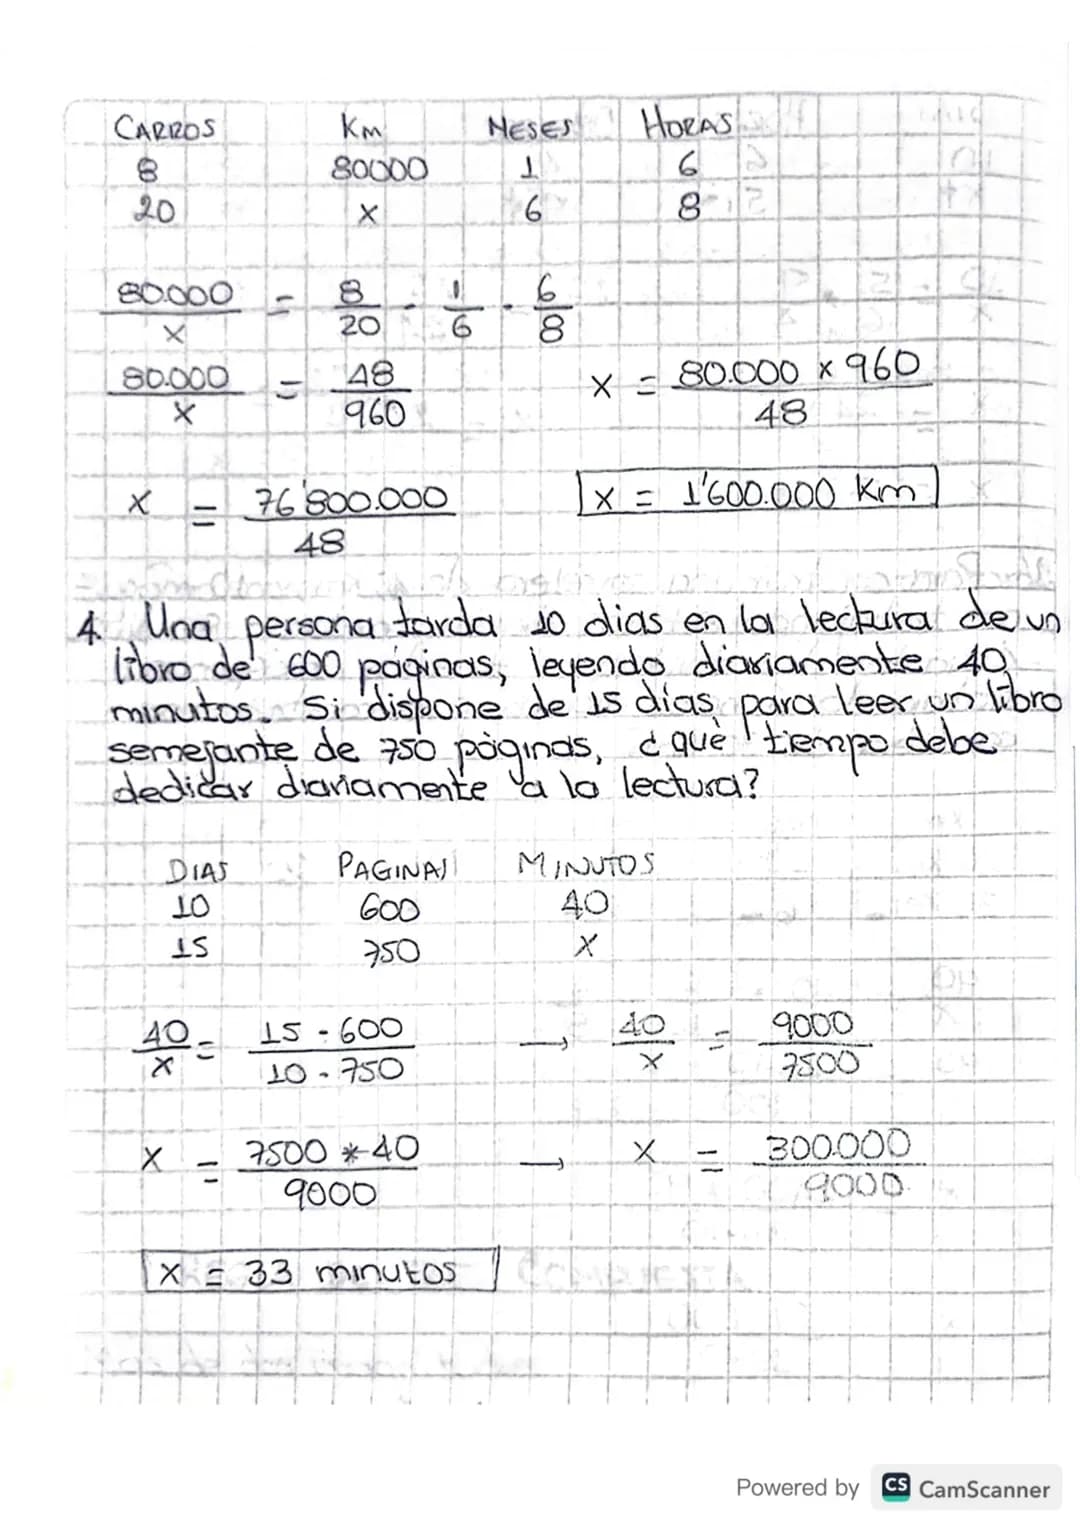 CARROS Km MESES HORAS
8 80000 1 6
20 x 6 8
80.000 / x = 8/20 · 1/6 · 6/8
80.000 / x = 48/960 x = 80.000 x 960 / 48
x = 76'800.000 / 48 x = 1'600.000 Km
4. Una persona tarda 10 dias en la lectura de un
libro de 600 páginas, leyendo diariamente 40
minutos. Si dispone de 15 días para leer un libro
semejante de 750 páginas, ¿qué tiempo debe
dedicar diariamente a la lectura?
DIAS PAGINAS MINUTOS
10 600 40
15 750 x
40/x = 15 · 600 / 10 · 750 → 40/x = 9000/7500
x = 7500 * 40 / 9000 → x = 300.000 / 9000
x = 33 minutos
Powered by CS CamScanner